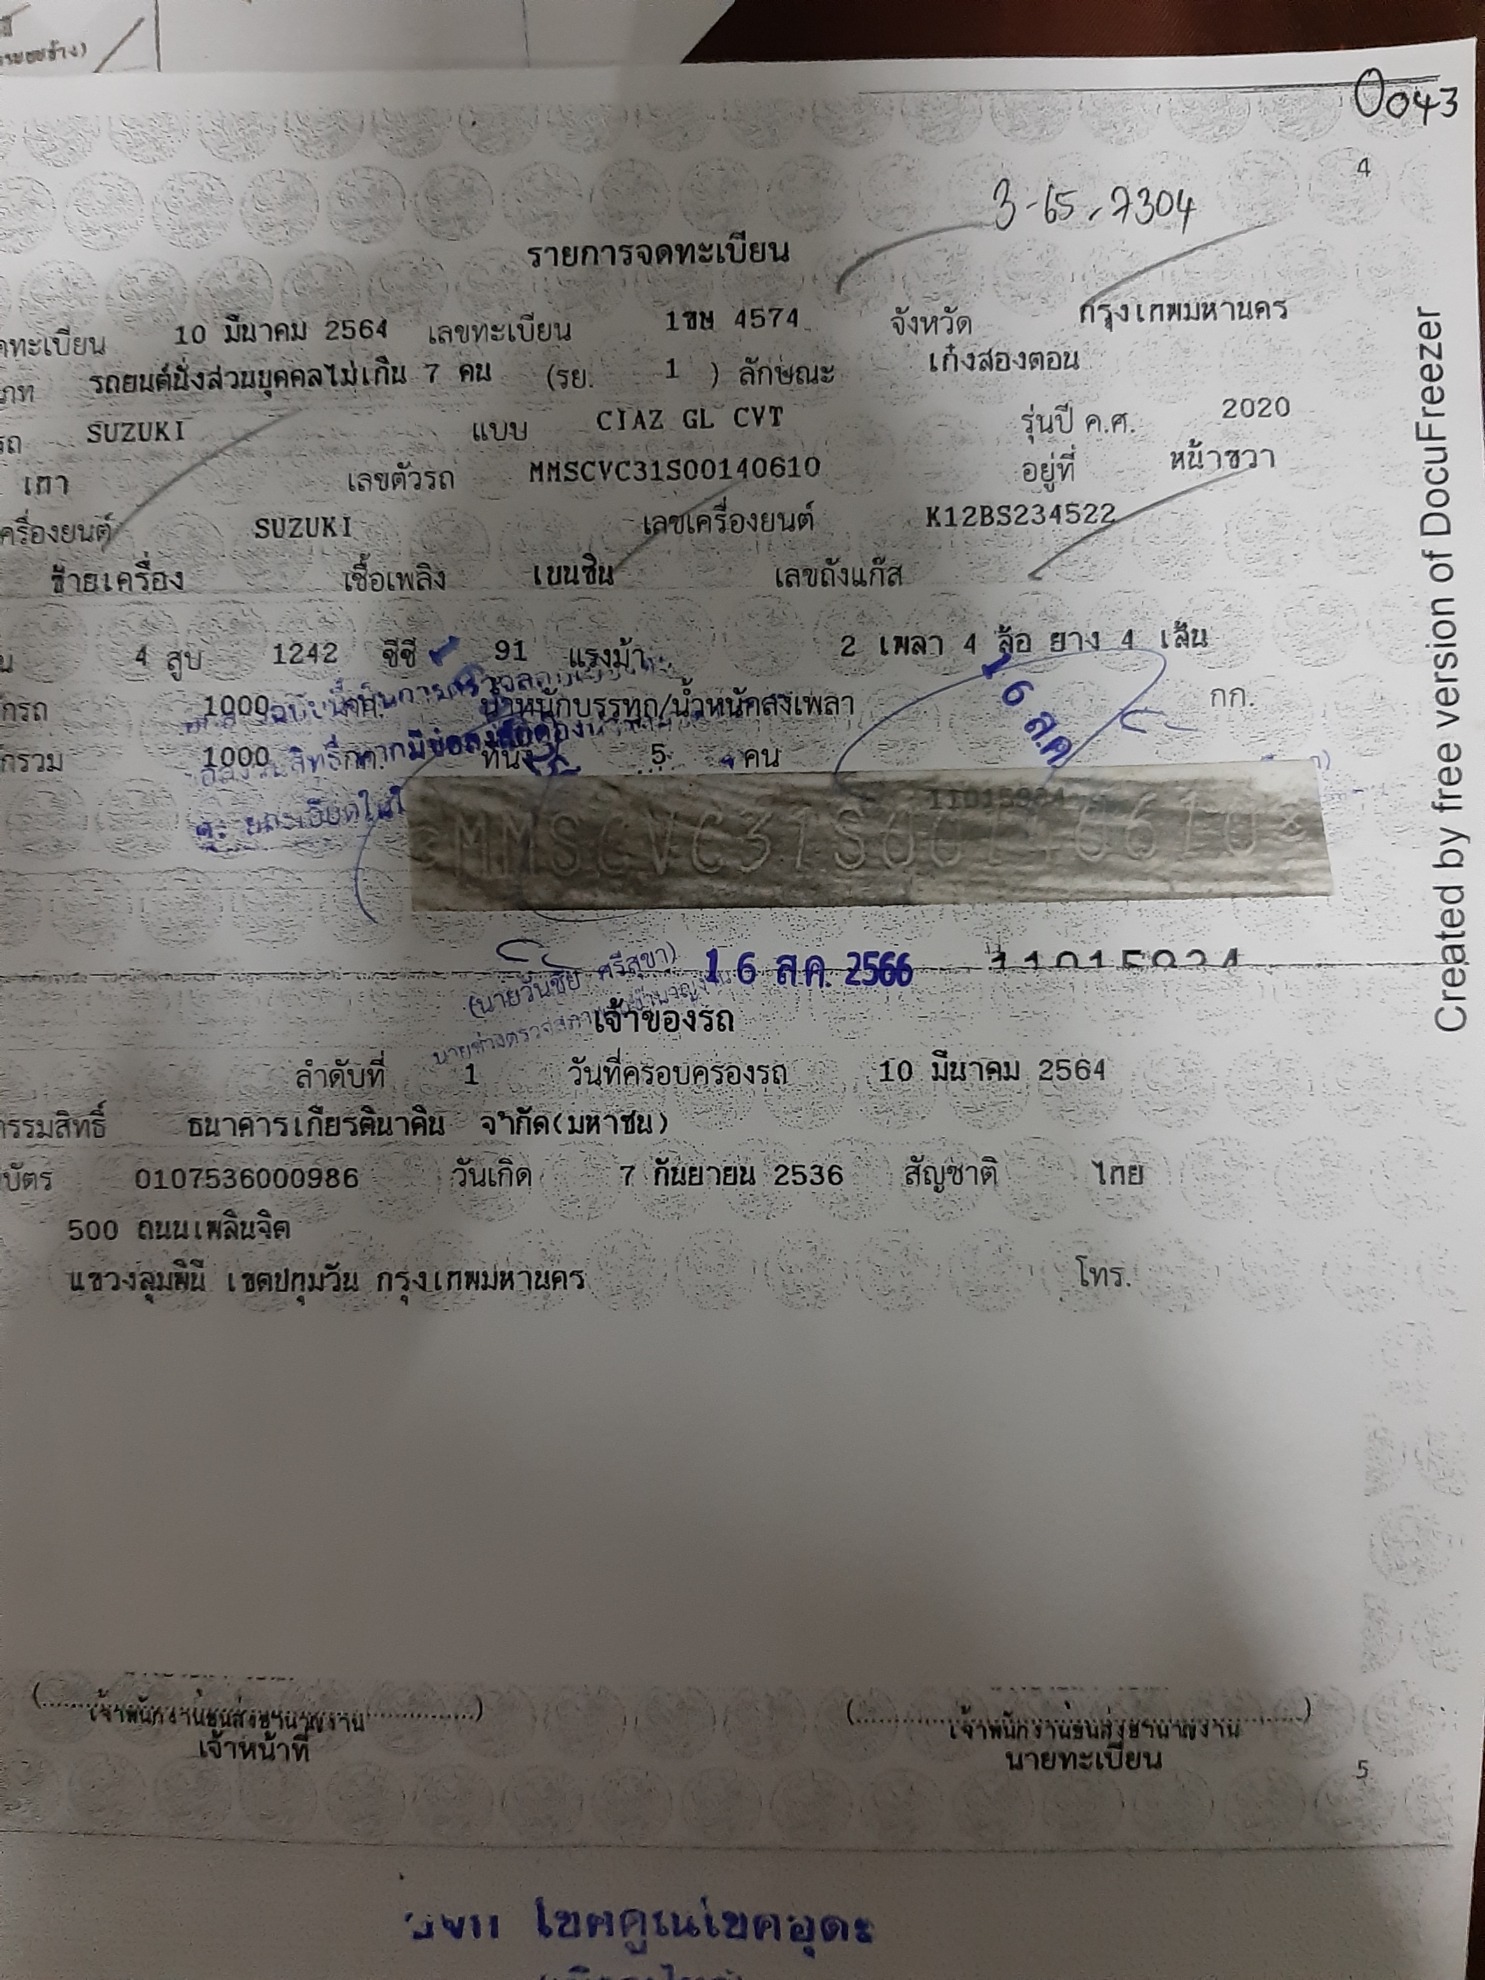 0043
4
3-65-7304
รายการจดทะเบียน
ทะเบียน 10 มีนาคม 2564 เลขทะเบียน 1ขษ 4574 จังหวัด กรุงเทพมหานคร
รถยนต์นั่งส่วนบุคคลไม่เกิน 7 คน (รย. 1 ) ลักษณะ เก๋งสองตอน
รถ SUZUKI แบบ CIAZ GL CVT รุ่นปี ค.ศ. 2020
เทา เลขตัวรถ MMSCVC31S00140610 อยู่ที่ หน้าขวา
เครื่องยนต์ SUZUKI เลขเครื่องยนต์ K12BS234522
ซ้ายเครื่อง เชื้อเพลิง เบนซิน เลขถังแก๊ส
4 สูบ 1242 ซีซี 91 แรงม้า 2 เพลา 4 ล้อ ยาง 4 เส้น
กรถ 1000 น้ำหนักบรรทุก/น้ำหนักลงเพลา กก.
กรวม 1000 กก. ที่นั่ง 5 คน
16 ส.ค.
MMSCVC31S00140610
(นายวันชัย ศรีสุขา) 16 ส.ค. 2566 11015924
เจ้าของรถ
ลำดับที่ 1 วันที่ครอบครองรถ 10 มีนาคม 2564
กรรมสิทธิ์ ธนาคารเกียรตินาคิน จำกัด(มหาชน)
บัตร 0107536000986 วันเกิด 7 กันยายน 2536 สัญชาติ ไทย
500 ถนนเพลินจิต
แขวงลุมพินี เขตปทุมวัน กรุงเทพมหานคร โทร.
(....................) (....................)
เจ้าพนักงานขนส่งชำนาญงาน เจ้าพนักงานขนส่งชำนาญงาน
เจ้าหน้าที่ นายทะเบียน
5
Created by free version of DocuFreezer